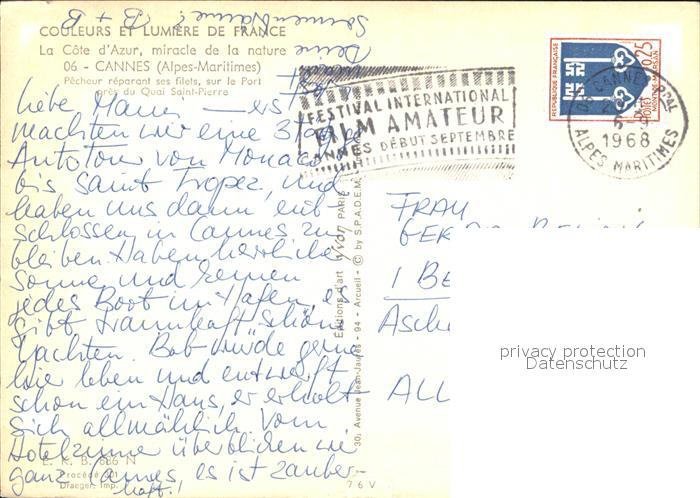 COULEURS ET LUMIÈRE DE FRANCE
La Côte d'Azur, miracle de la nature
06 - CANNES (Alpes-Maritimes)
Pêcheur réparant ses filets, sur le Port
près du Quai Saint-Pierre
Liebe Mami — erst
machten wir eine 3 Tage
Autotour von Monaco
bis Saint Tropez, und
haben uns dann ent-
schlossen in Cannes zu
bleiben. Haben herrliche
Sonne und kennen
jedes Boot im Hafen, es
gibt traumhaft schöne
Yachten. Bob würde gerne
hier leben und entwirft
schon ein Haus, er erholt
sich allmählich. Vom
Hotelzimmer überblicken wir
ganz Cannes, es ist zauber-
haft!
Deine
B + B
E. K. B. 636 N
Procédé 301
Draeger, Imp.
Editions d'art Yvon PARIS
30, Avenue Jean-Jaurès - 94 - Arcueil - © by S.P.A.D.E.M.
76 V
FESTIVAL INTERNATIONAL
FILM AMATEUR
CANNES DÉBUT SEPTEMBRE
REPUBLIQUE FRANÇAISE
0,25
POSTES
MONT-DE-MARSAN
CANNES
1968
ALPES MARITIMES
FRAU
1 BE
ASCH
ALL
privacy protection
Datenschutz